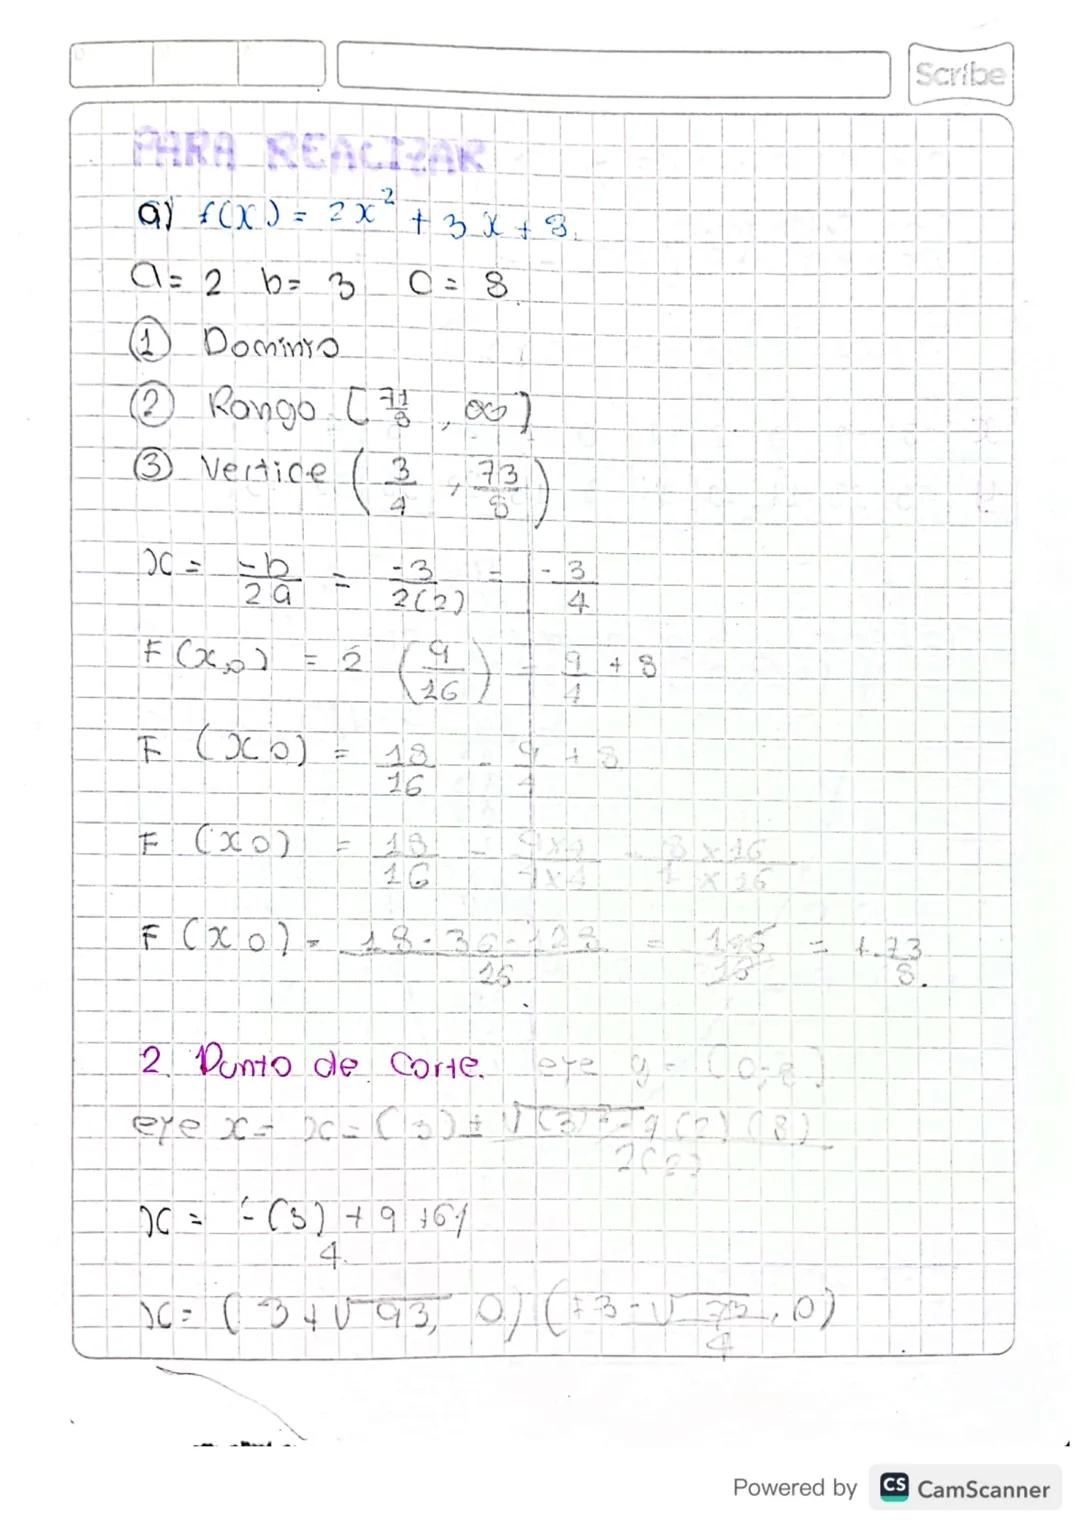 Scribe
PARA REALIZAR
a) f(x) = 2x² + 3x + 8.
a = 2 b = 3 C = 8.
① Dominio
② Rango [71/8, ∞]
③ Vertice (3/4, 73/8)
x = -b/2a = -3/2(2) = -3/4
F(x,0) = 2 (9/16) - 9/4 + 8
F (x0) = 18/16 - 9/4 + 8
F (x0) = 18/16 -
F (x0) = 18-36-128/16 = = 73/8.
2. Punto de Corte. eye y =
eye x = x = (3) ± √(3)² - 4(2)(8)/2(2)
x = -(3) + 9 + 64/4.
x = (3 + √93, 0) (-3 - √73/4, 0)
Powered by CS CamScanner